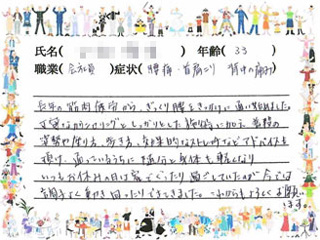 氏名( ) 年齢( 33 )
職業( 会社員 )症状( 腰痛・首肩こり 背中の痛み )
長年の筋肉疲労から、ぎっくり腰をきっかけに通い始めました。
丁寧なカウンセリングとしっかりとした施術に加え、普段の
姿勢や座り方、歩き方、効果的なストレッチなどアドバイスを
頂き、通っているうちに随分と身体も軽くなり
いつもお休みの日は家でぐったり過ごしていたが今では
調子よく動き回ったりできてきました。これからもよろしくお願い
します。